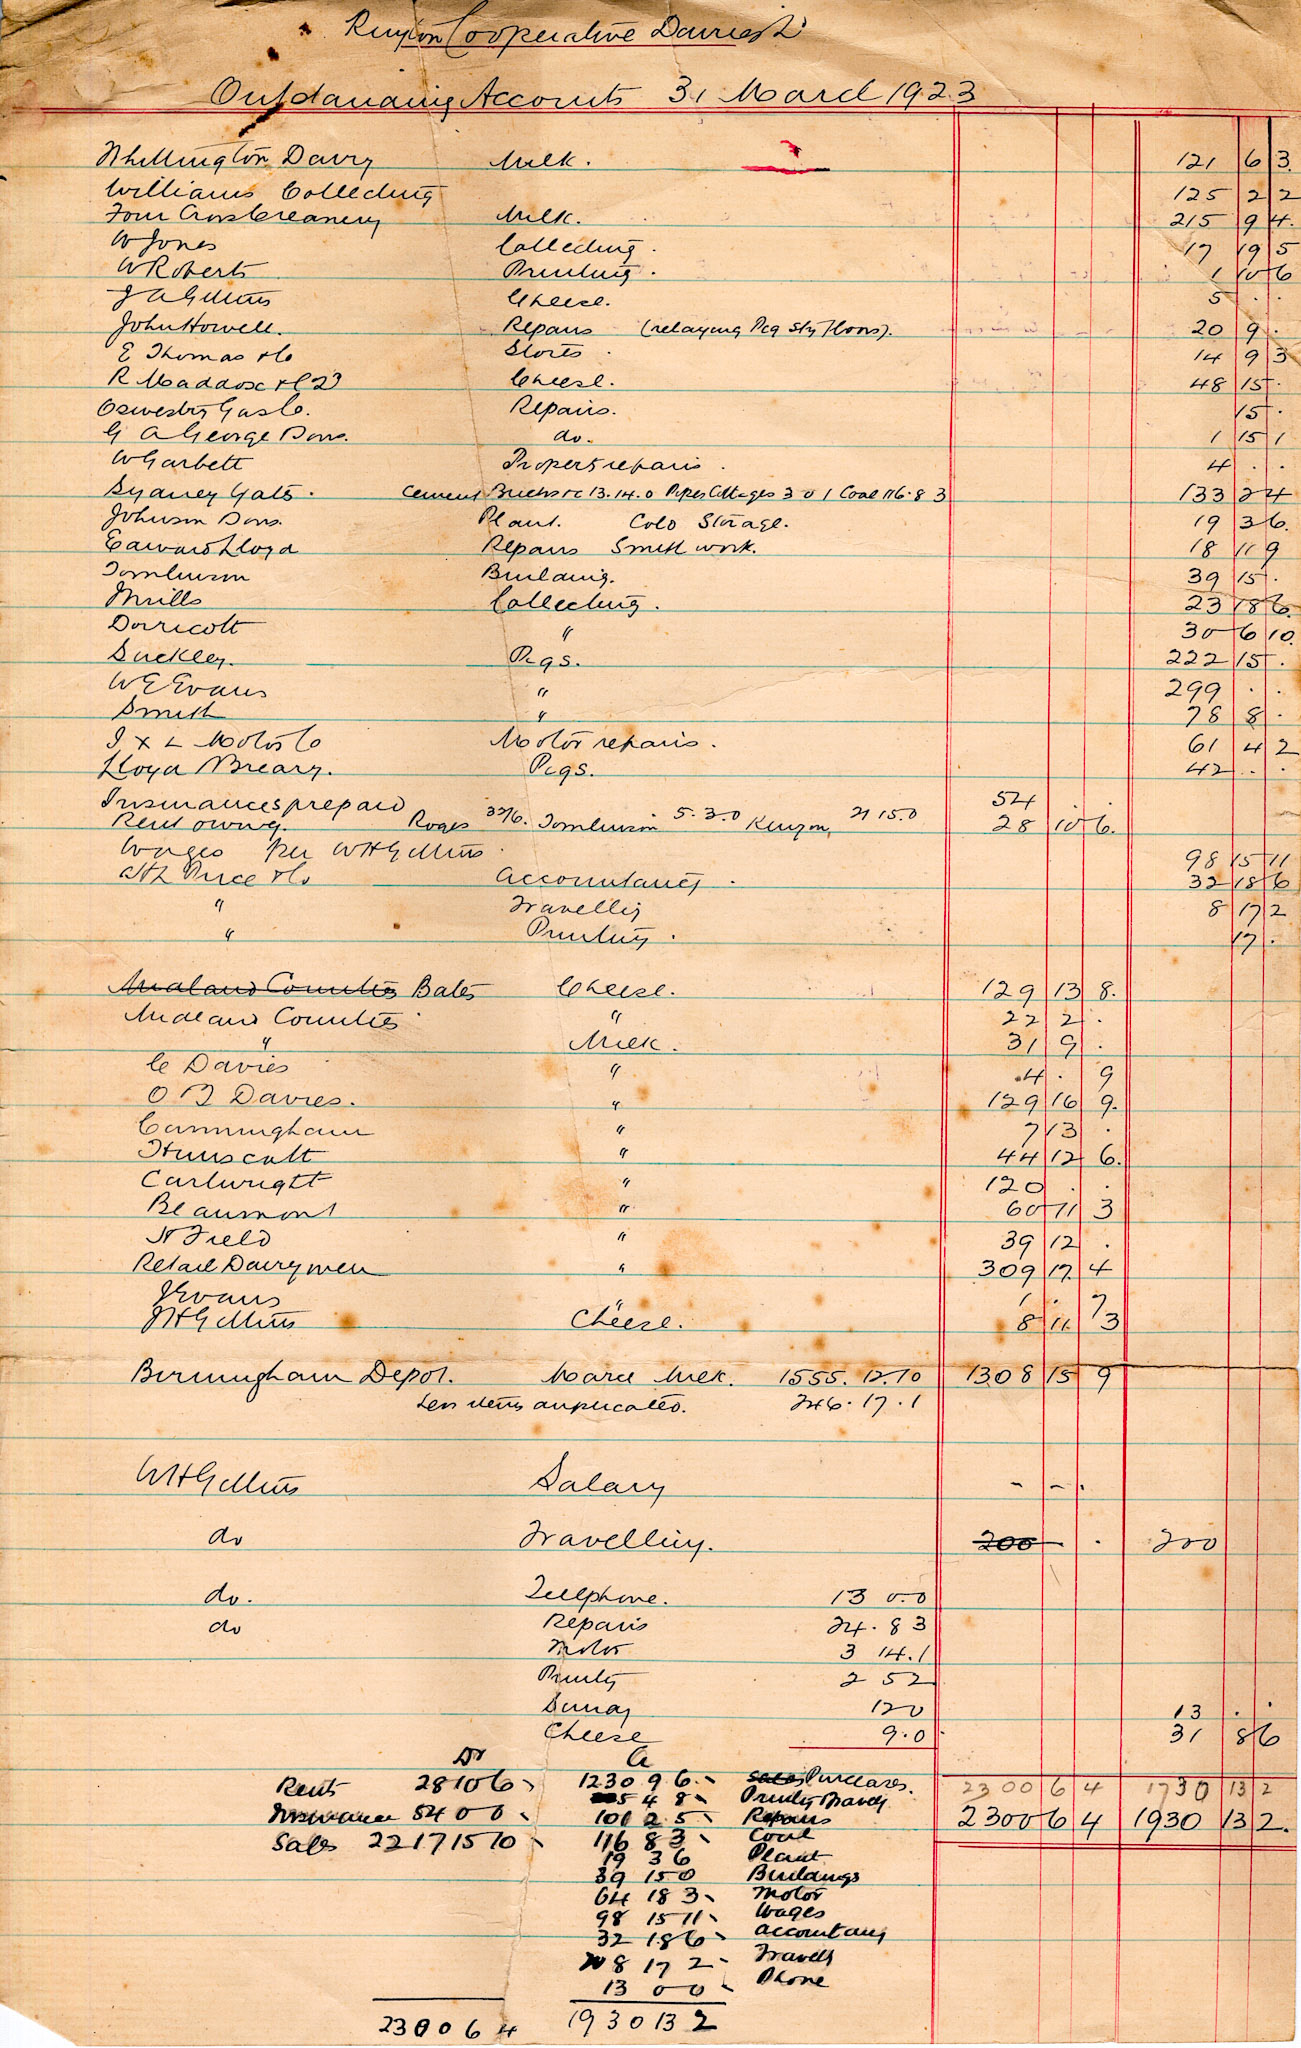 Cooperative Dairies Ld
Outstanding Accounts 31 March 1923
Whittington Dairy Milk. 121 6 3.
Williams Collecting 125 2 2
Four Cross Creamery Milk. 215 9 4.
W Jones Collecting. 17 19 5
W Roberts Printing. 1 10 6
J A Gittins Cheese. 5 . .
John Howell. Repairs (relaying Pig Sty floors). 20 9 .
E Thomas & Co Stores. 14 9 3
R Maddox & Co Ld Cheese. 48 15 .
Oswestry Gas Co. Repairs. 15 .
G A George Sons. do. 1 15 1
W Garbett Property repairs. 4 . .
Sydney Gates. Cement Bricks &c 13.14.0 Pipes Cottages 3 0 1 Coal 116.8 3 133 2 4
Johnson Sons. Plant. Cold Storage. 19 3 6.
Edward Lloyd Repairs Smith work. 18 11 9
Tomlinson Building. 39 15 .
Mills Collecting. 23 18 6.
Dorricott " 30 6 10.
Suckley. Pigs. 222 15 .
W E Evans " 299 . .
Smith " 78 8 .
I X L Motor Co Motor repairs. 61 4 2
Lloyd Breary. Pigs. 42 . .
Insurances prepaid 54 . .
Rent owing. Roger 32/6. Tomlinson 5.3.0 21 15.0 28 10 6.
Wages per W H Gittins 98 15 11
Price & Co Accountancy. 32 18 6
" Travellig 8 17 2
" Printing. 17 .
Midland Counties Bates Cheese. 129 13 8.
Midland Counties " 22 2 .
" Milk. 31 9 .
C Davies " 4 . 9
O J Davies. " 129 16 9.
Cunningham " 7 13 .
Hunscott " 44 12 6.
Cartwright " 120 . .
Beaumont " 60 11 3
N Field " 39 12 .
Retail Dairymen " 309 17 4
J Evans " 1 . 7
W H Gittins Cheese. 8 11 3
Birmingham Depot. March Milk. 1555.12.10 1308 15 9
Less items duplicated. 246.17.1
W H Gittins Salary - - .
do Travelling. 200 - . 200
do. Telephone. 13 0.0
do Repairs 24.8 3
Motor 3 14.1
Printg 2 5 2
Sundy 12 0 13 . .
Cheese 9.0 31 8 6
Dr Cr
Rent 28 10 6 1230 9 6. Sales Purchases. 2300 6 4 1730 13 2
Insurance 54 0 0 5 4 8 2300 6 4 1930 13 2.
101 2 5 Repairs
Sales 2217 15 10 116 8 3 Coal
19 3 6 Plant
39 15 0 Buildings
64 18 3 Motor
98 15 11 Wages
32 18 6 Accountany
208 17 2 Travellg
13 0 0 Phone
2300 6 4 1930 13 2